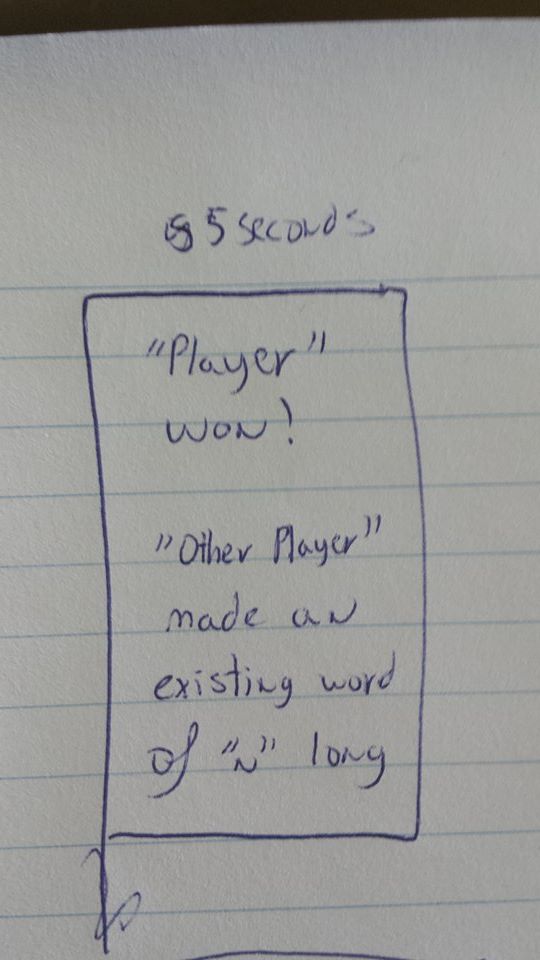 5 seconds
"Player"
won!
"Other Player"
made an
existing word
of "n" long